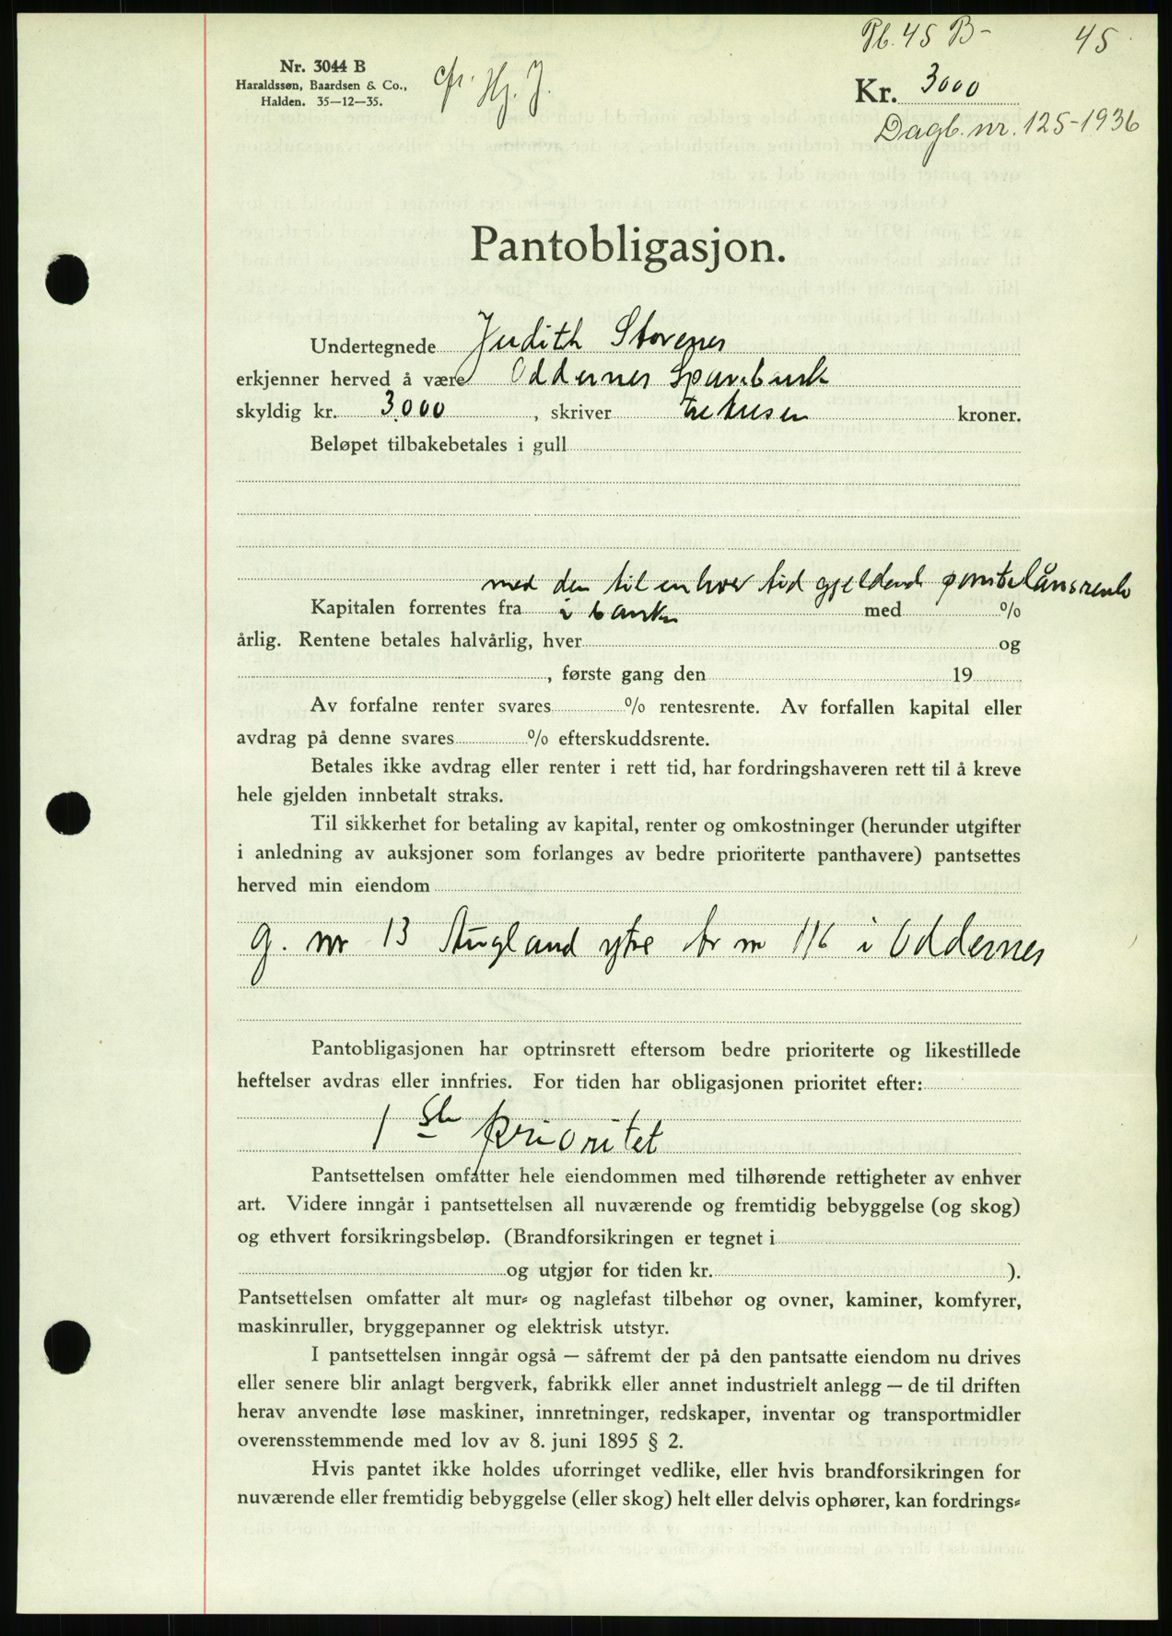 Pb. 45 B- 45
Nr. 3044 B
Haraldssøn, Baardsen & Co.,
Halden. 35—12—35.
cfr. Hj. J.
Kr. 3000
Dagb. nr. 125-1936
Pantobligasjon.
Undertegnede Judith Storenes
erkjenner herved å være Oddernes Sparebank
skyldig kr. 3.000, skriver tre tusen kroner.
Beløpet tilbakebetales i gull
med den til enhver tid gjeldende pantelånsrente
Kapitalen forrentes fra i banken med %
årlig. Rentene betales halvårlig, hver og
, første gang den 19
Av forfalne renter svares % rentesrente. Av forfallen kapital eller
avdrag på denne svares % efterskuddsrente.
Betales ikke avdrag eller renter i rett tid, har fordringshaveren rett til å kreve
hele gjelden innbetalt straks.
Til sikkerhet for betaling av kapital, renter og omkostninger (herunder utgifter
i anledning av auksjoner som forlanges av bedre prioriterte panthavere) pantsettes
herved min eiendom
g. nr 13 Augland ytre br nr 116 i Oddernes
Pantobligasjonen har optrinsrett eftersom bedre prioriterte og likestillede
heftelser avdras eller innfries. For tiden har obligasjonen prioritet efter:
1 ste prioritet
Pantsettelsen omfatter hele eiendommen med tilhørende rettigheter av enhver
art. Videre inngår i pantsettelsen all nuværende og fremtidig bebyggelse (og skog)
og ethvert forsikringsbeløp. (Brandforsikringen er tegnet i
og utgjør for tiden kr. ).
Pantsettelsen omfatter alt mur- og naglefast tilbehør og ovner, kaminer, komfyrer,
maskinruller, bryggepanner og elektrisk utstyr.
I pantsettelsen inngår også — såfremt der på den pantsatte eiendom nu drives
eller senere blir anlagt bergverk, fabrikk eller annet industrielt anlegg — de til driften
herav anvendte løse maskiner, innretninger, redskaper, inventar og transportmidler
overensstemmende med lov av 8. juni 1895 § 2.
Hvis pantet ikke holdes uforringet vedlike, eller hvis brandforsikringen for
nuværende eller fremtidig bebyggelse (eller skog) helt eller delvis ophører, kan fordrings-